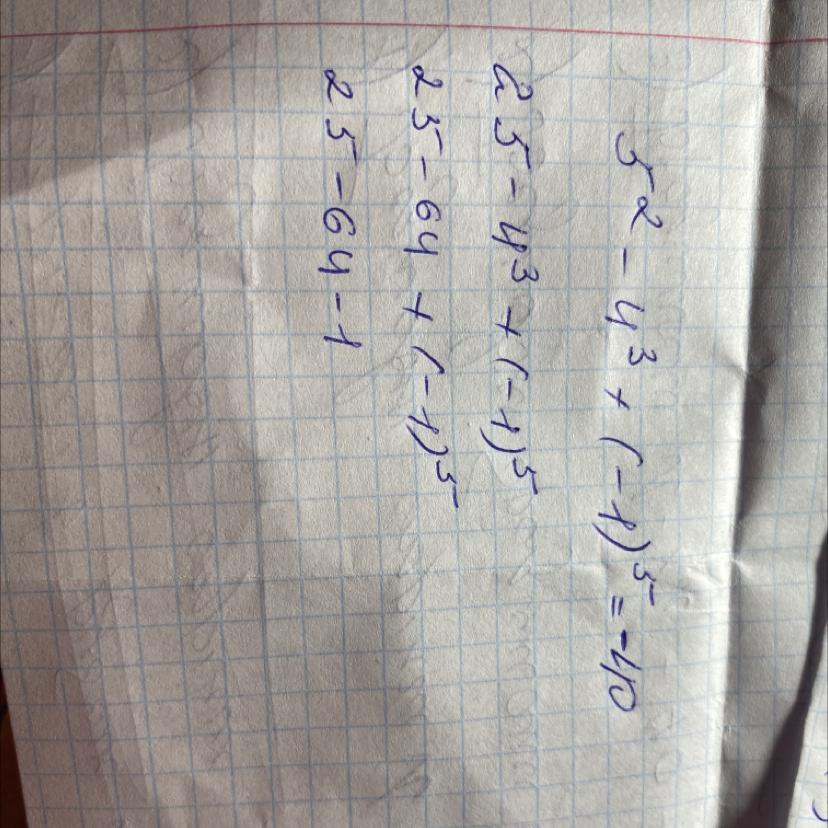 5² - 4³ + (-1)⁵ = -40
25 - 4³ + (-1)⁵
25 - 64 + (-1)⁵
25 - 64 - 1